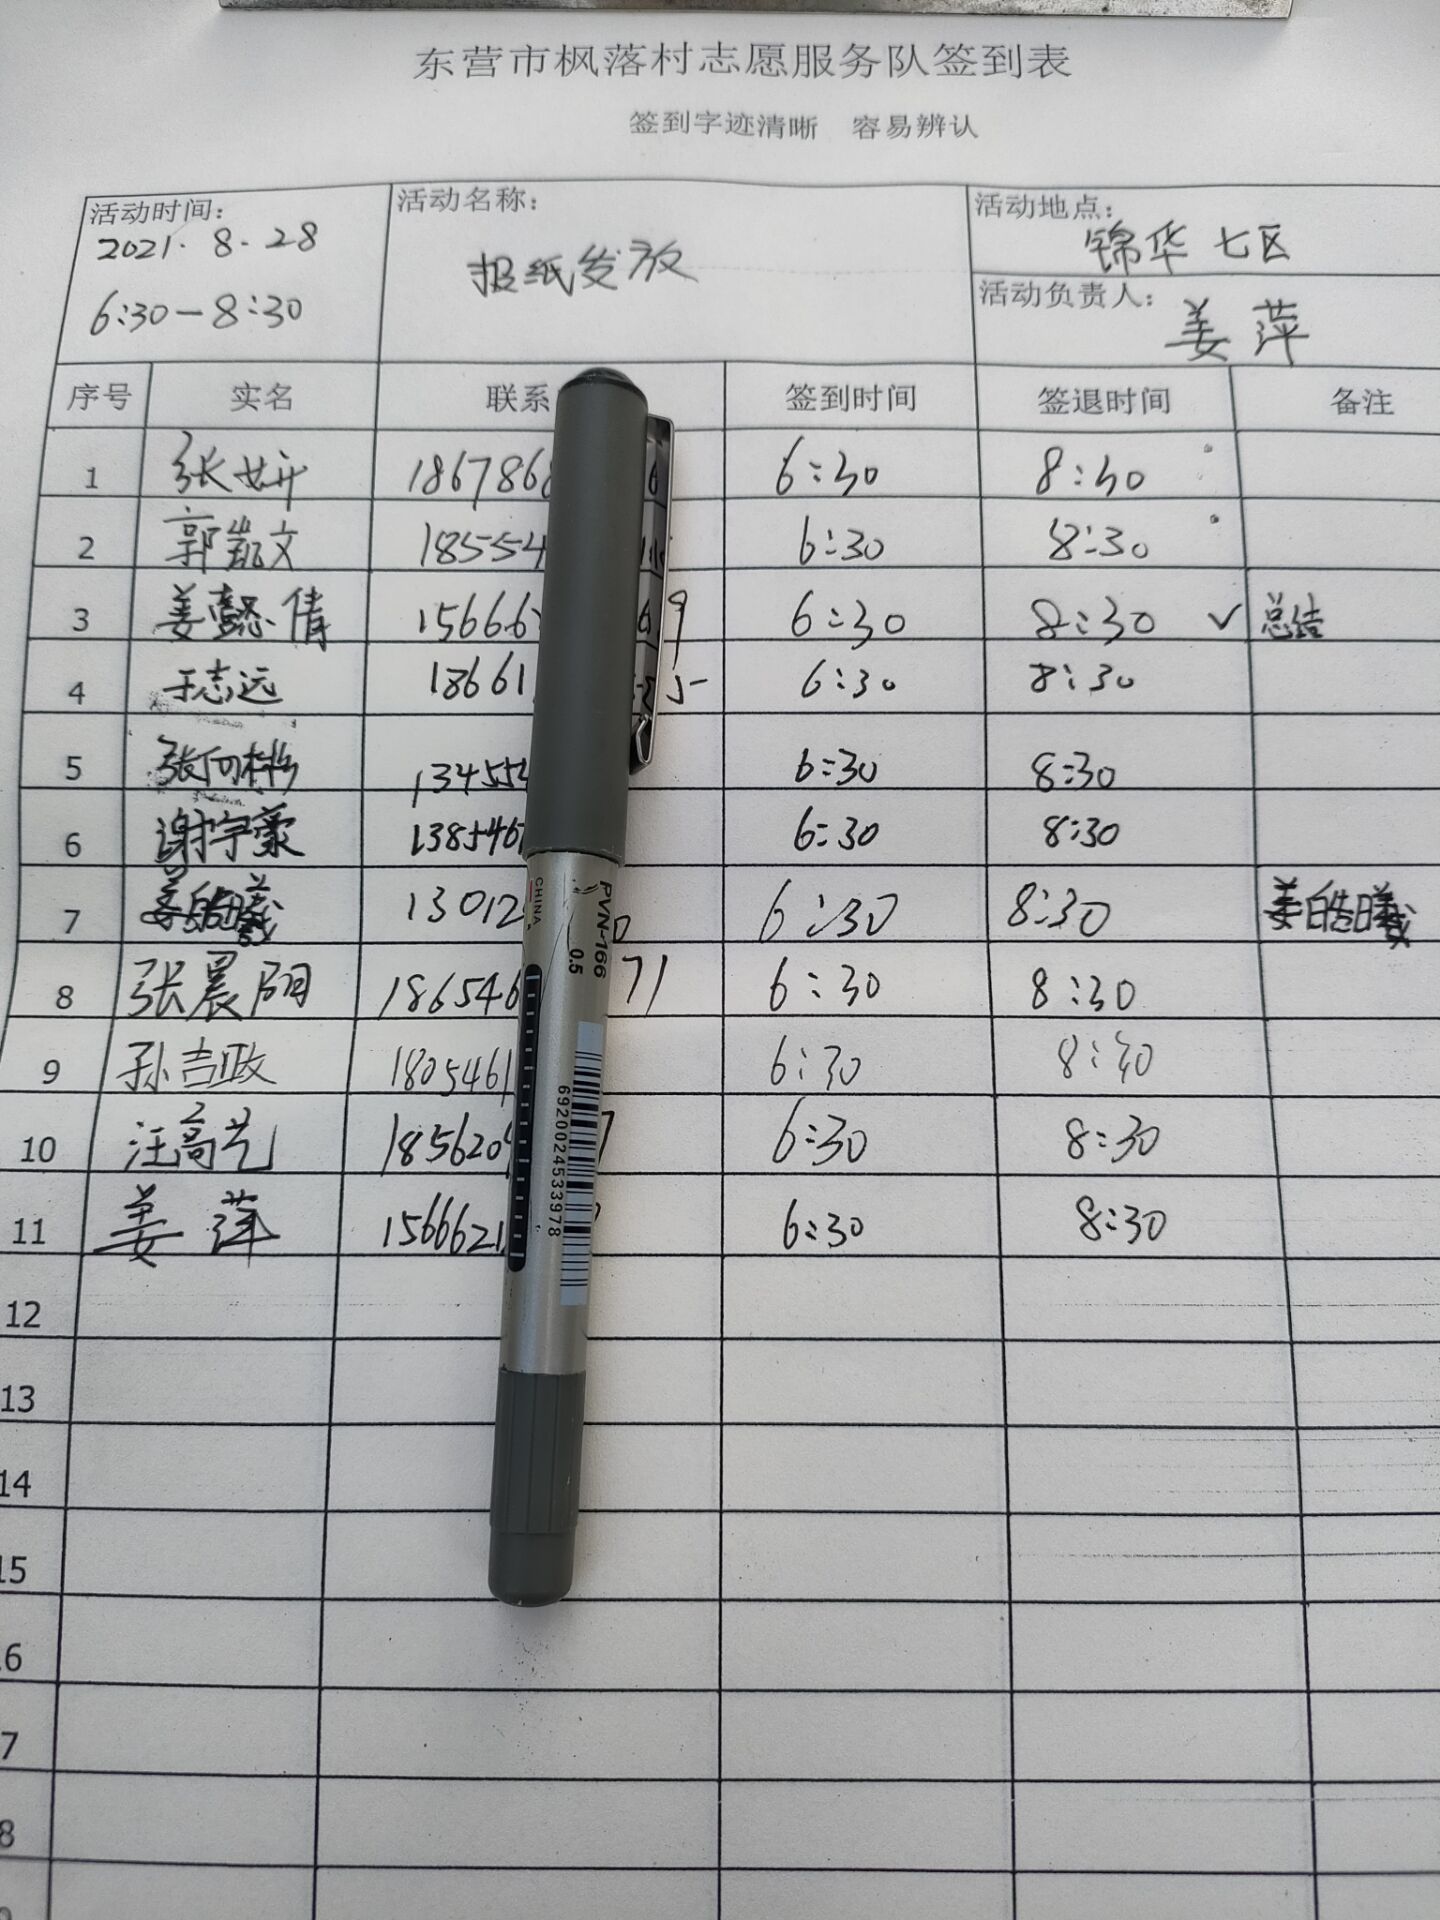 东营市枫落村志愿服务队签到表
签到字迹清晰 容易辨认
活动时间: 活动名称: 活动地点:
2021.8.28 报纸发放 锦华七区
6:30-8:30 活动负责人: 姜萍
序号 实名 联系 签到时间 签退时间 备注
1 张妍 1867868 6 6:30 8:30
2 郭凯文 18554 6:30 8:30
3 姜懿倩 15666 9 6:30 8:30 ✓ 总结
4 于志远 18661 5 6:30 8:30
5 134554 6:30 8:30
6 谢宇豪 1385467 6:30 8:30
7 姜皓曦 13012 0 6:30 8:30 姜皓曦
8 张晨阳 186546 71 6:30 8:30
9 孙吉政 1805461 6:30 8:30
10 汪高艺 185620 7 6:30 8:30
11 姜萍 1566621 6:30 8:30
12
13
14
15
6
7
8
CHINA
PVN-166
0.5
6920024533978